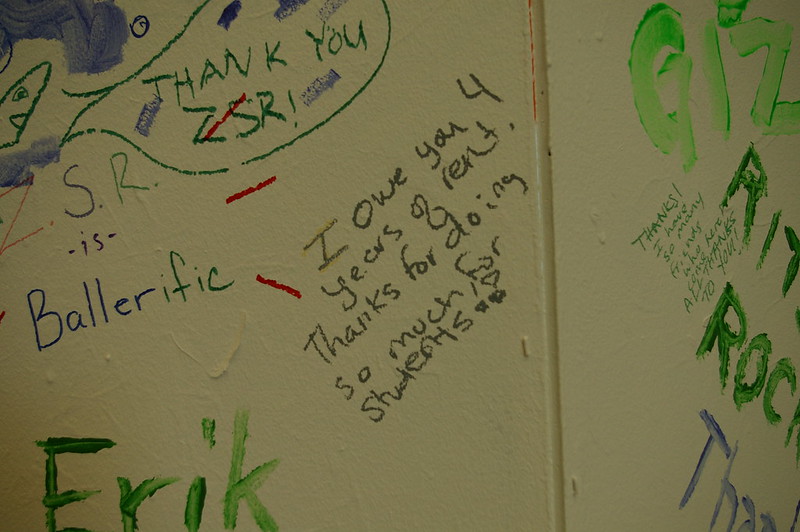 THANK YOU
ZSR!
S.R.
-is-
Ballerific
I owe you 4
years of rent.
Thanks for doing
so much for
students
Erik
GIZ
THANKS!
I have
so many
friends
who
ALL THANKS
TO YOU!
ROCK